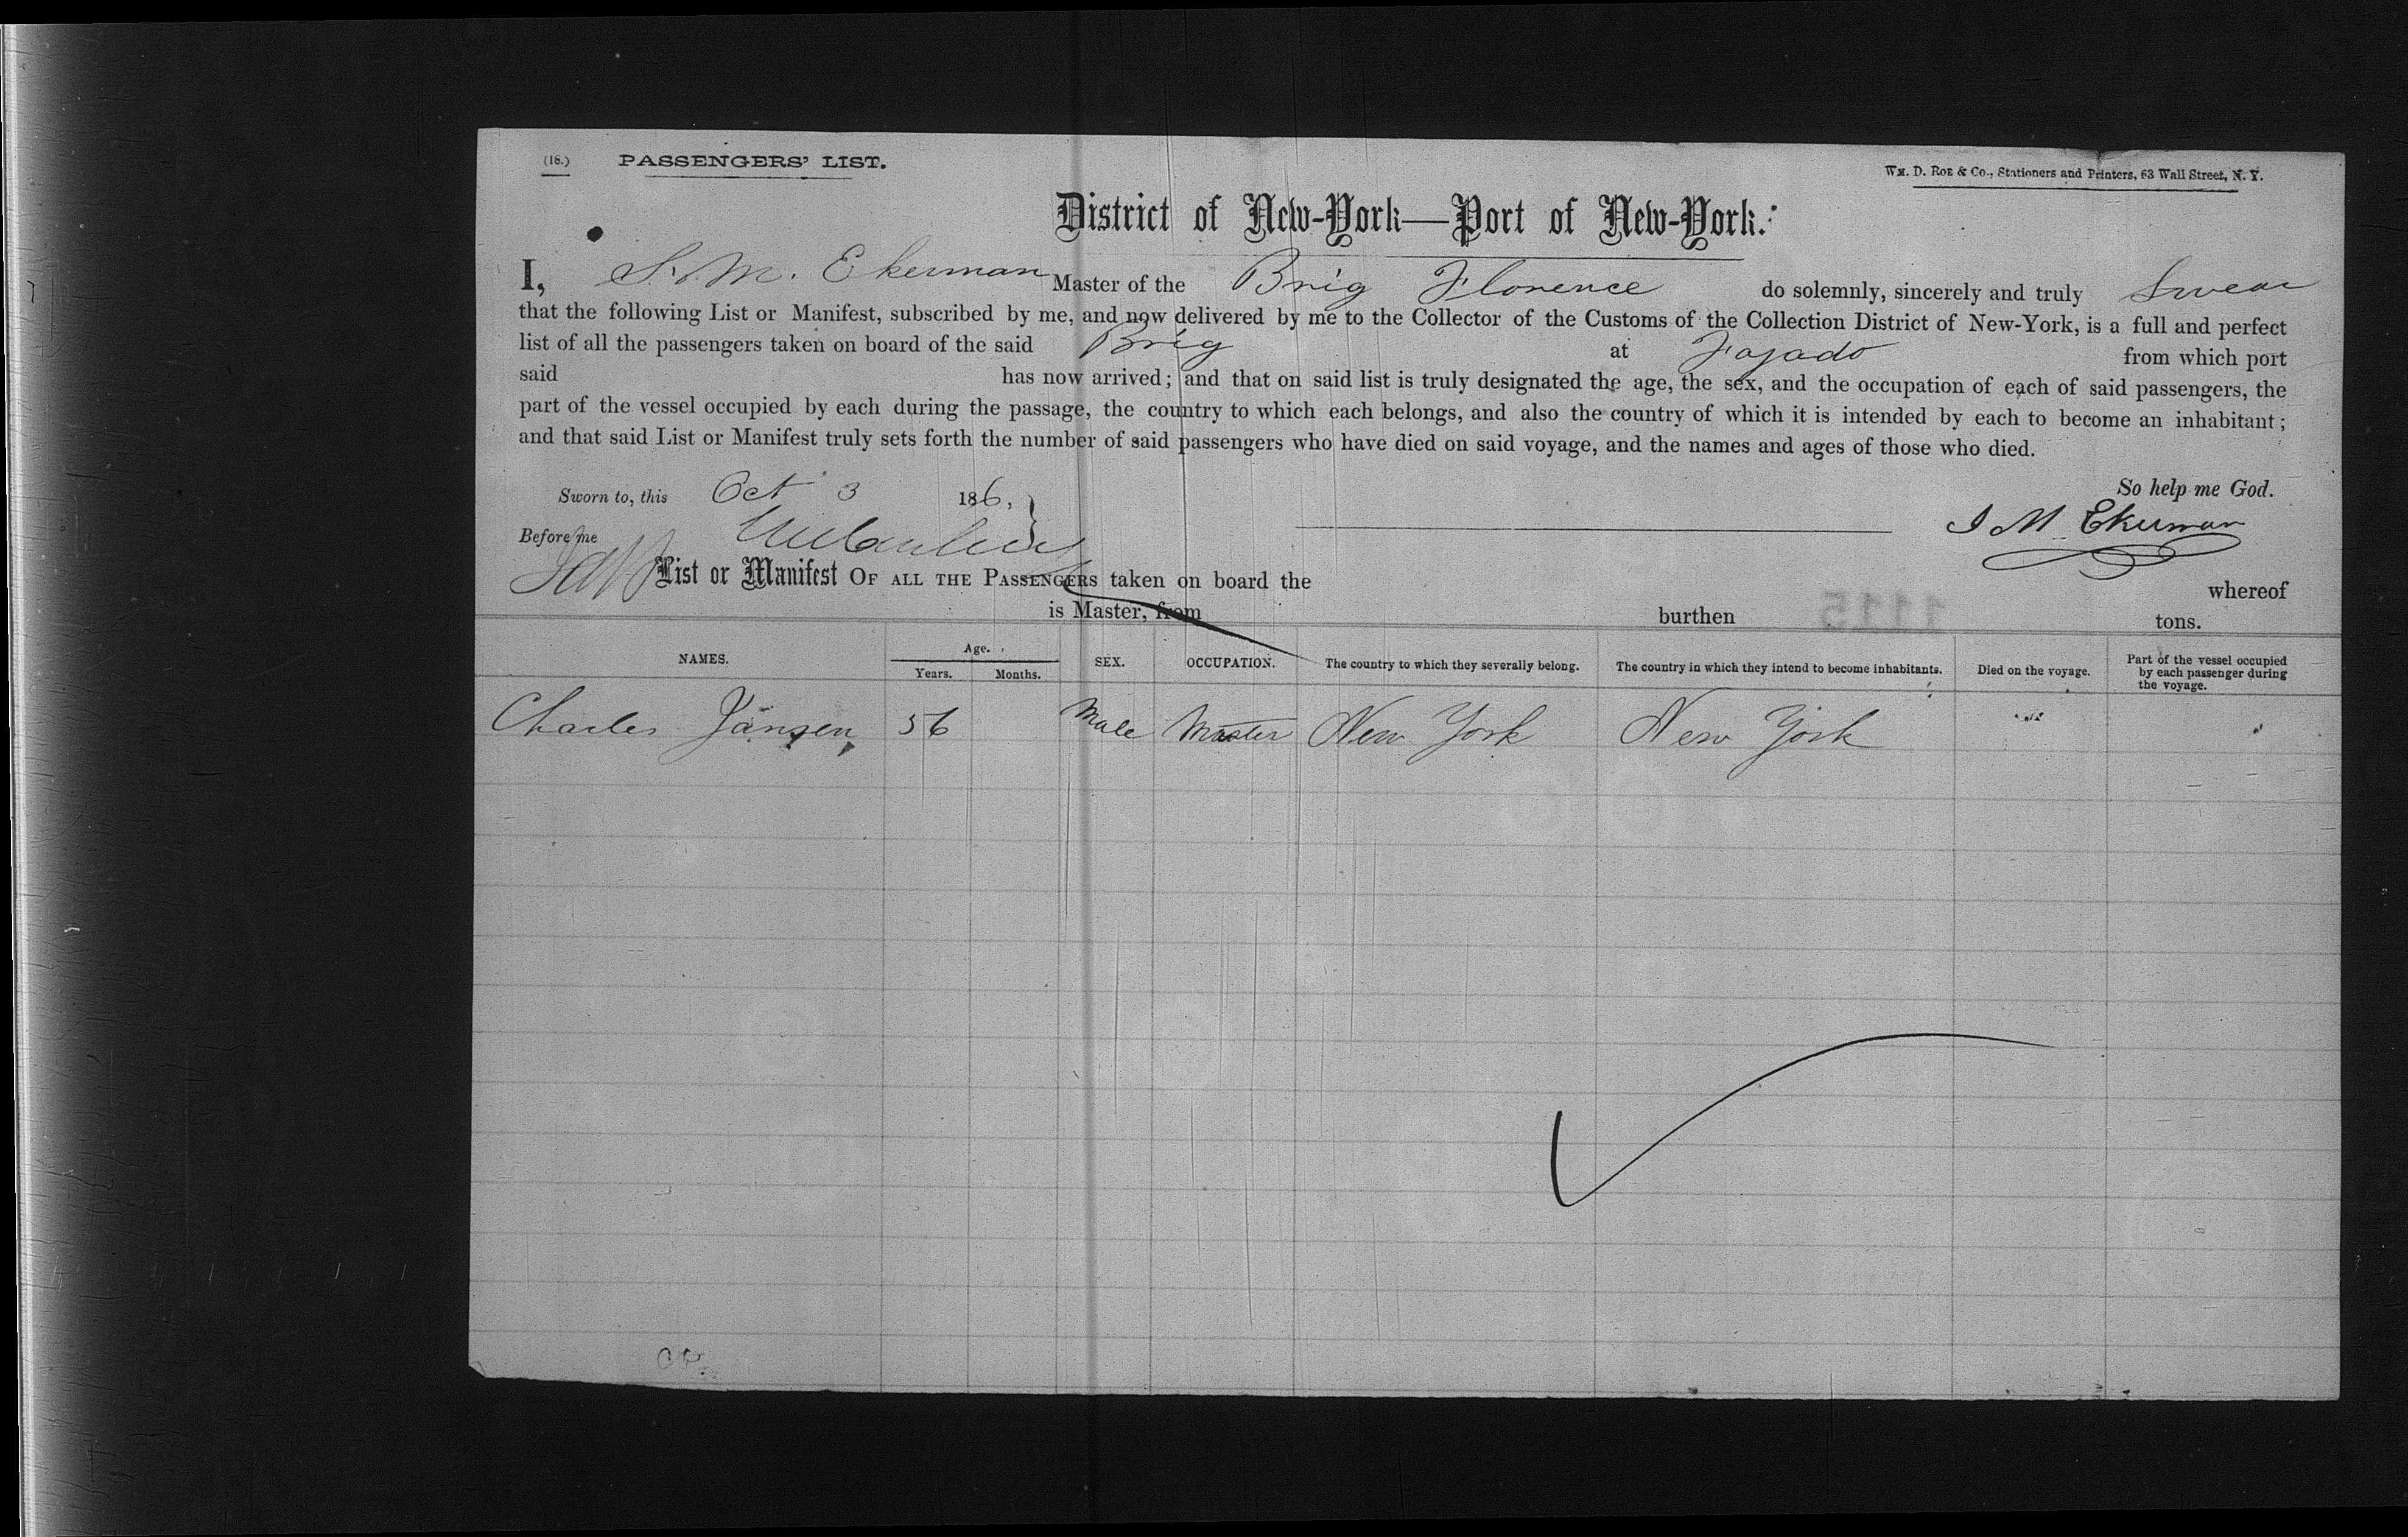 (18.) PASSENGERS' LIST.
WM. D. ROE & CO., Stationers and Printers, 63 Wall Street, N. Y.
District of New-York—Port of New-York.
I, S. M. Ekerman Master of the Brig Florence do solemnly, sincerely and truly Swear
that the following List or Manifest, subscribed by me, and now delivered by me to the Collector of the Customs of the Collection District of New-York, is a full and perfect
list of all the passengers taken on board of the said Brig at Fajado from which port
said has now arrived; and that on said list is truly designated the age, the sex, and the occupation of each of said passengers, the
part of the vessel occupied by each during the passage, the country to which each belongs, and also the country of which it is intended by each to become an inhabitant;
and that said List or Manifest truly sets forth the number of said passengers who have died on said voyage, and the names and ages of those who died.
Sworn to, this Oct 3 186, So help me God.
Before me
List or Manifest OF ALL THE PASSENGERS taken on board the whereof
is Master, from burthen tons.
NAMES. Age. Years. Months. SEX. OCCUPATION. The country to which they severally belong. The country in which they intend to become inhabitants. Died on the voyage. Part of the vessel occupied by each passenger during the voyage.
Charles Jansen 56 Male Master New York New York